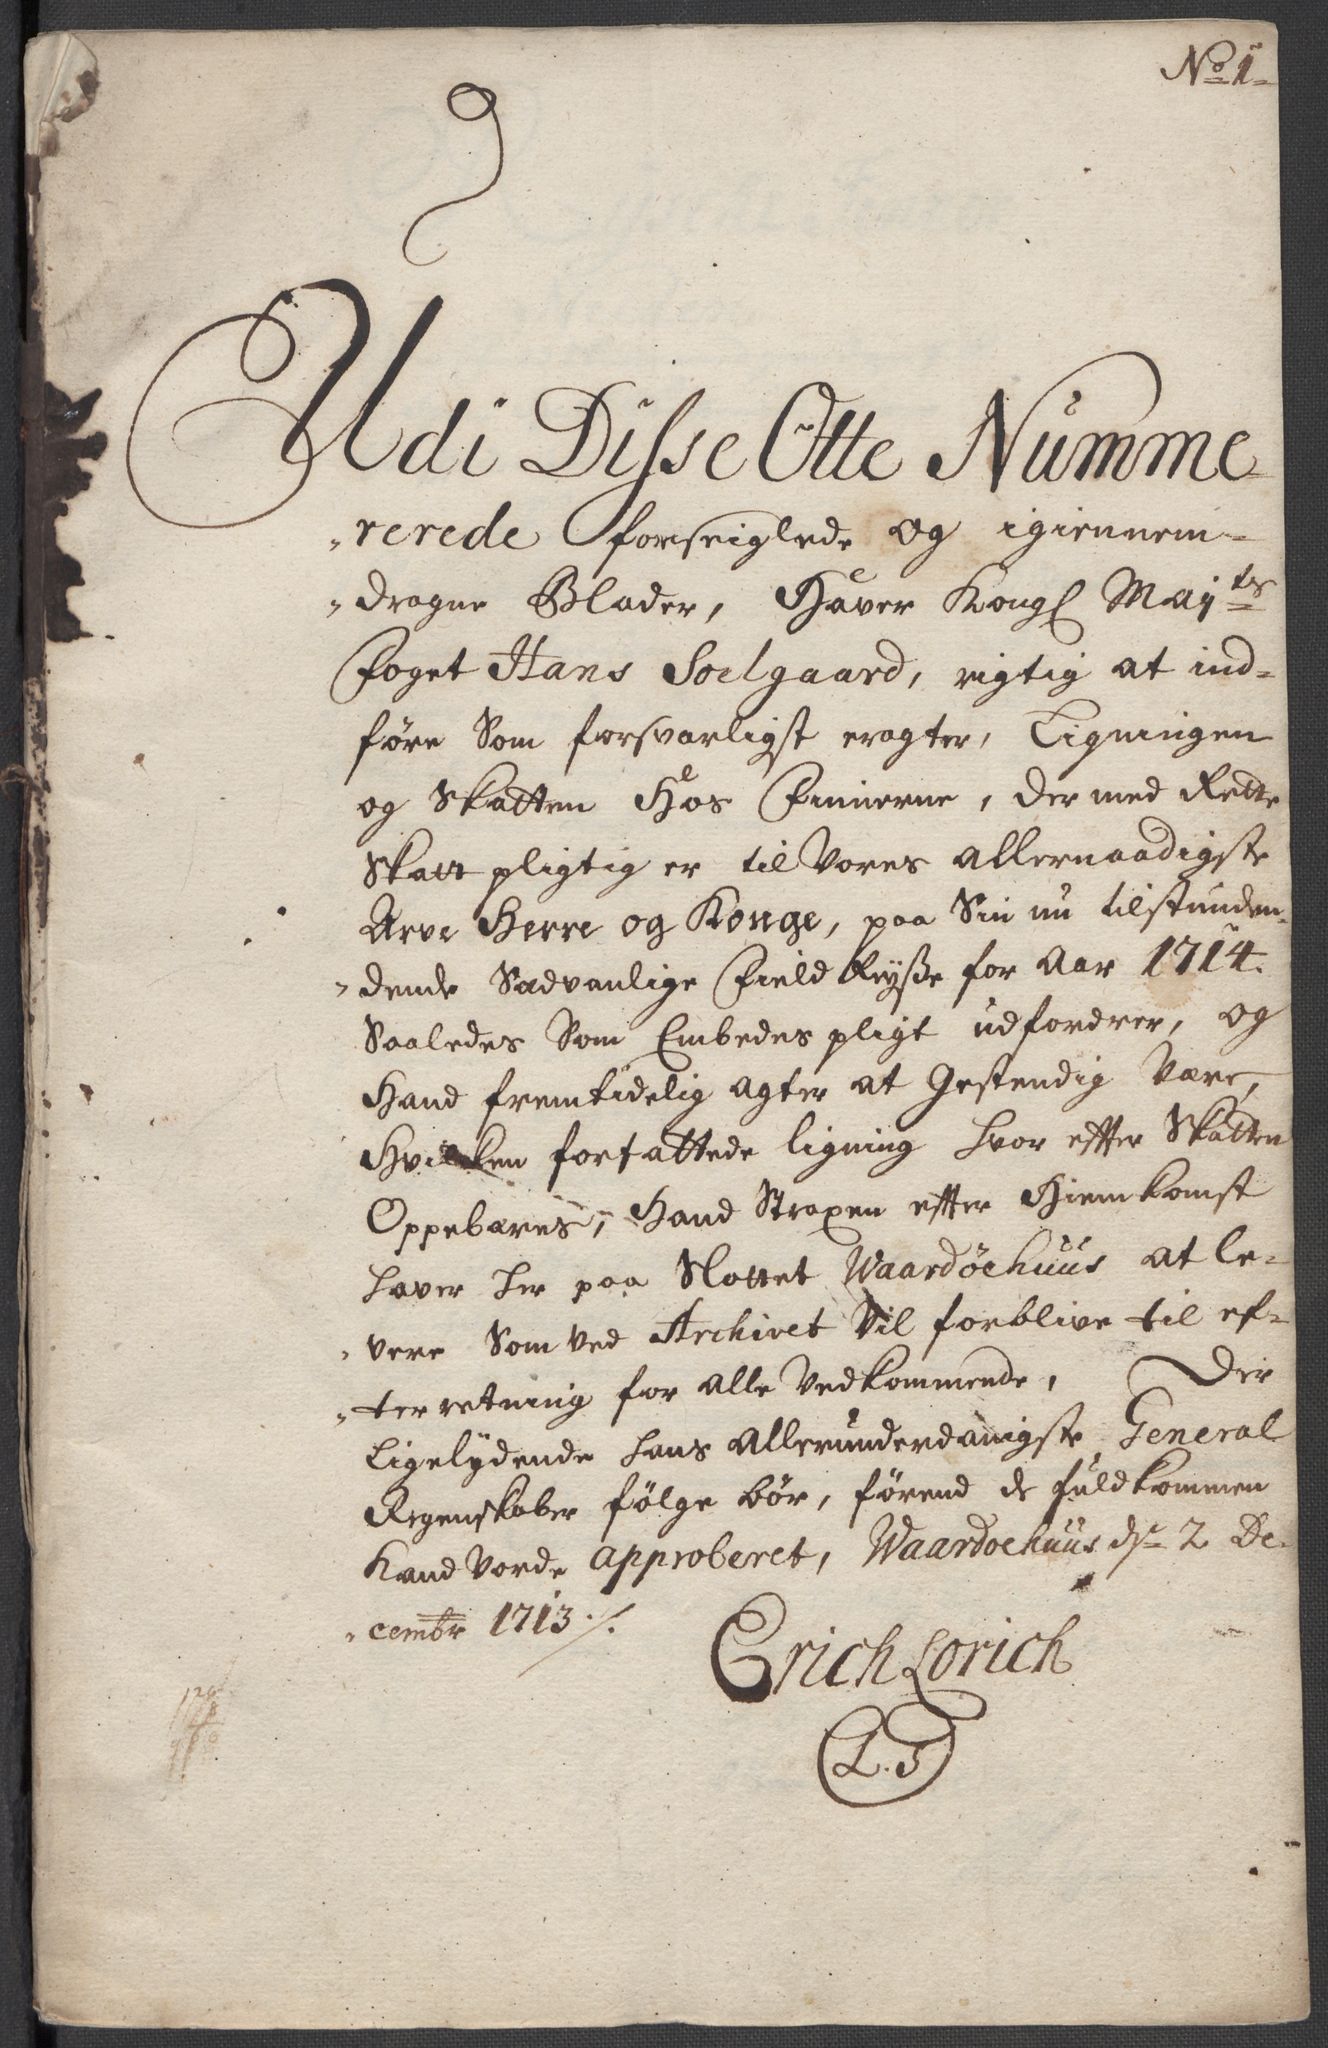 No 1
Udi Disse Otte Numme-
-rerede forseiglede og igiennem-
-dragne Blader, Haver Kongl Maÿts
Foget Hans Soelgaard, rigtig at ind-
føre Som forsvarligst eragter, Ligningen
og Skatten Hos Finnerne, der med Rette
Skatt pligtig er til Vores allernaadigste
Arve Herre og Konge, paa Sin nu tilstunden-
-dende Sædvanlige Field Reyße for Aar 1714.
Saaledes Som Embedes pligt udfordrer, og
Hand fremtidelig agter at Gestendig Være,
Hvilken forfattede ligning hvor effter Skatten
Oppebæres, Hand Straxen effter Hiemkomst
haver her paa Slottet Waardøehuus at le-
-vere Som ved Archivet Vil forblive til ef-
-terretning for alle Vedkommende, Der
Ligelydende hans Allerunderdanigste General
Regenskaber følge bør, førend de fuldkommen
Kand Vorde approberet, Waardoehuus dn 2 De-
-cembr 1713 ./.
Erich Lorich
L.S